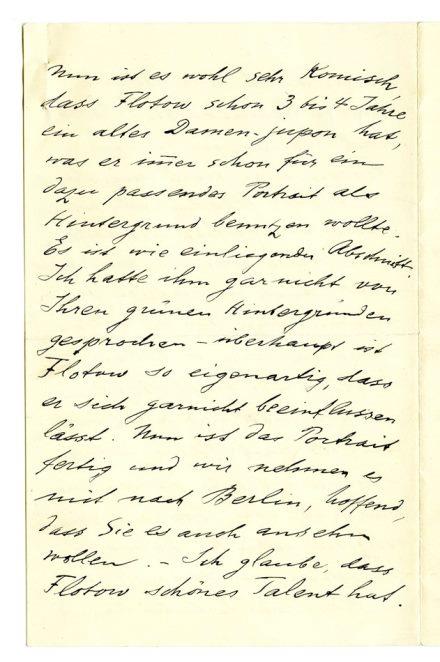 Nun ist es wohl sehr Komisch
dass Flotow schon 3 bis 4 Jahre
ein altes Damen-jupon hat,
was er im̅er schon für ein
dazu passendes Portrait als
Hintergrund benutzen wollte.
Es ist wie einliegender Abschnitt.
Ich hatte ihm garnicht von
Ihren grünen Hintergründen
gesprochen – überhaupt ist
Flotow so eigenartig, dass
er sich garnicht beeinflussen
lässt. Nun ist das Portrait
fertig und wir nehmen es
mit nach Berlin, hoffend,
dass Sie es auch ansehn
wollen. – Ich glaube, dass
Flotow schönes Talent hat.